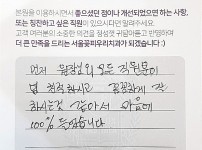 본원을 이용하시면서 좋으셨던 점이나 개선되었으면 하는 사항,
또는 칭찬하고 싶은 직원이 있으시다면 알려주세요.
고객 여러분의 소중한 의견을 정성껏 귀담아듣고 반영하며
더 큰 만족을 드리는 서울꽃피우리치과가 되겠습니다 :)
먼저 원장님외 모든 직원분이
넘 친절하시고 꼼꼼하게 잘
하시는것 같아서 마음에
100% 듭니다